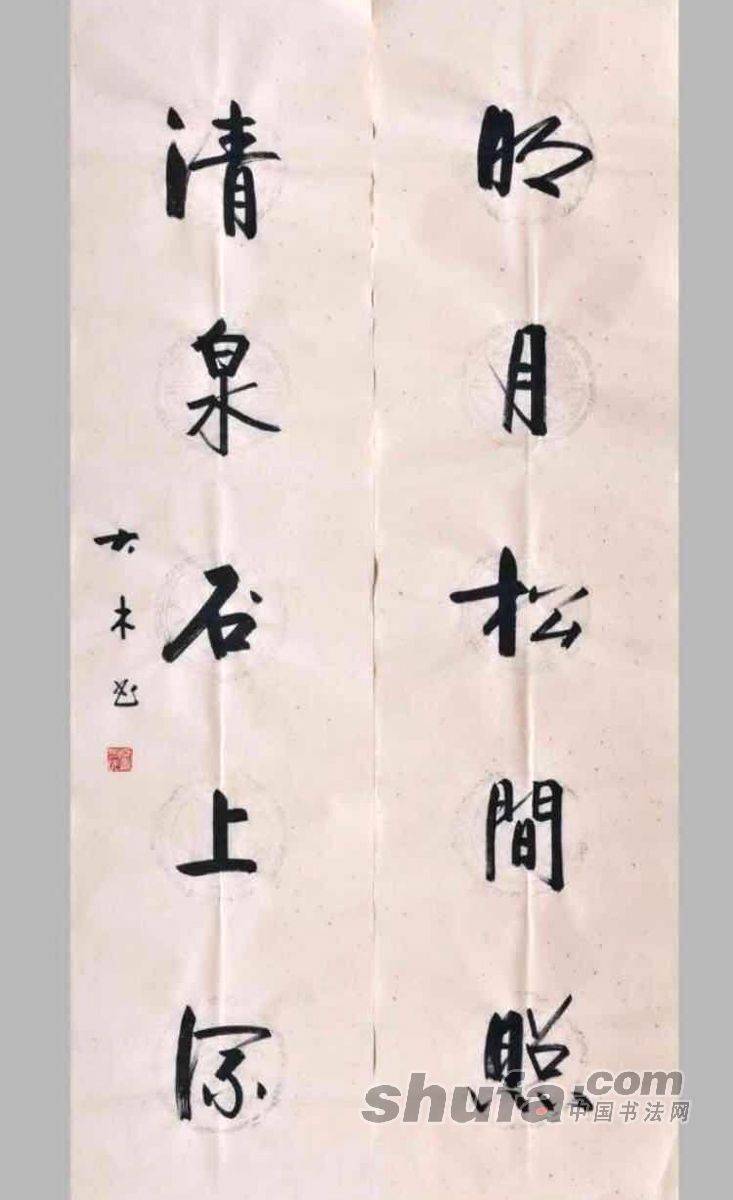 明月松間照
清泉石上流
大木
shufa.com
中国书法网